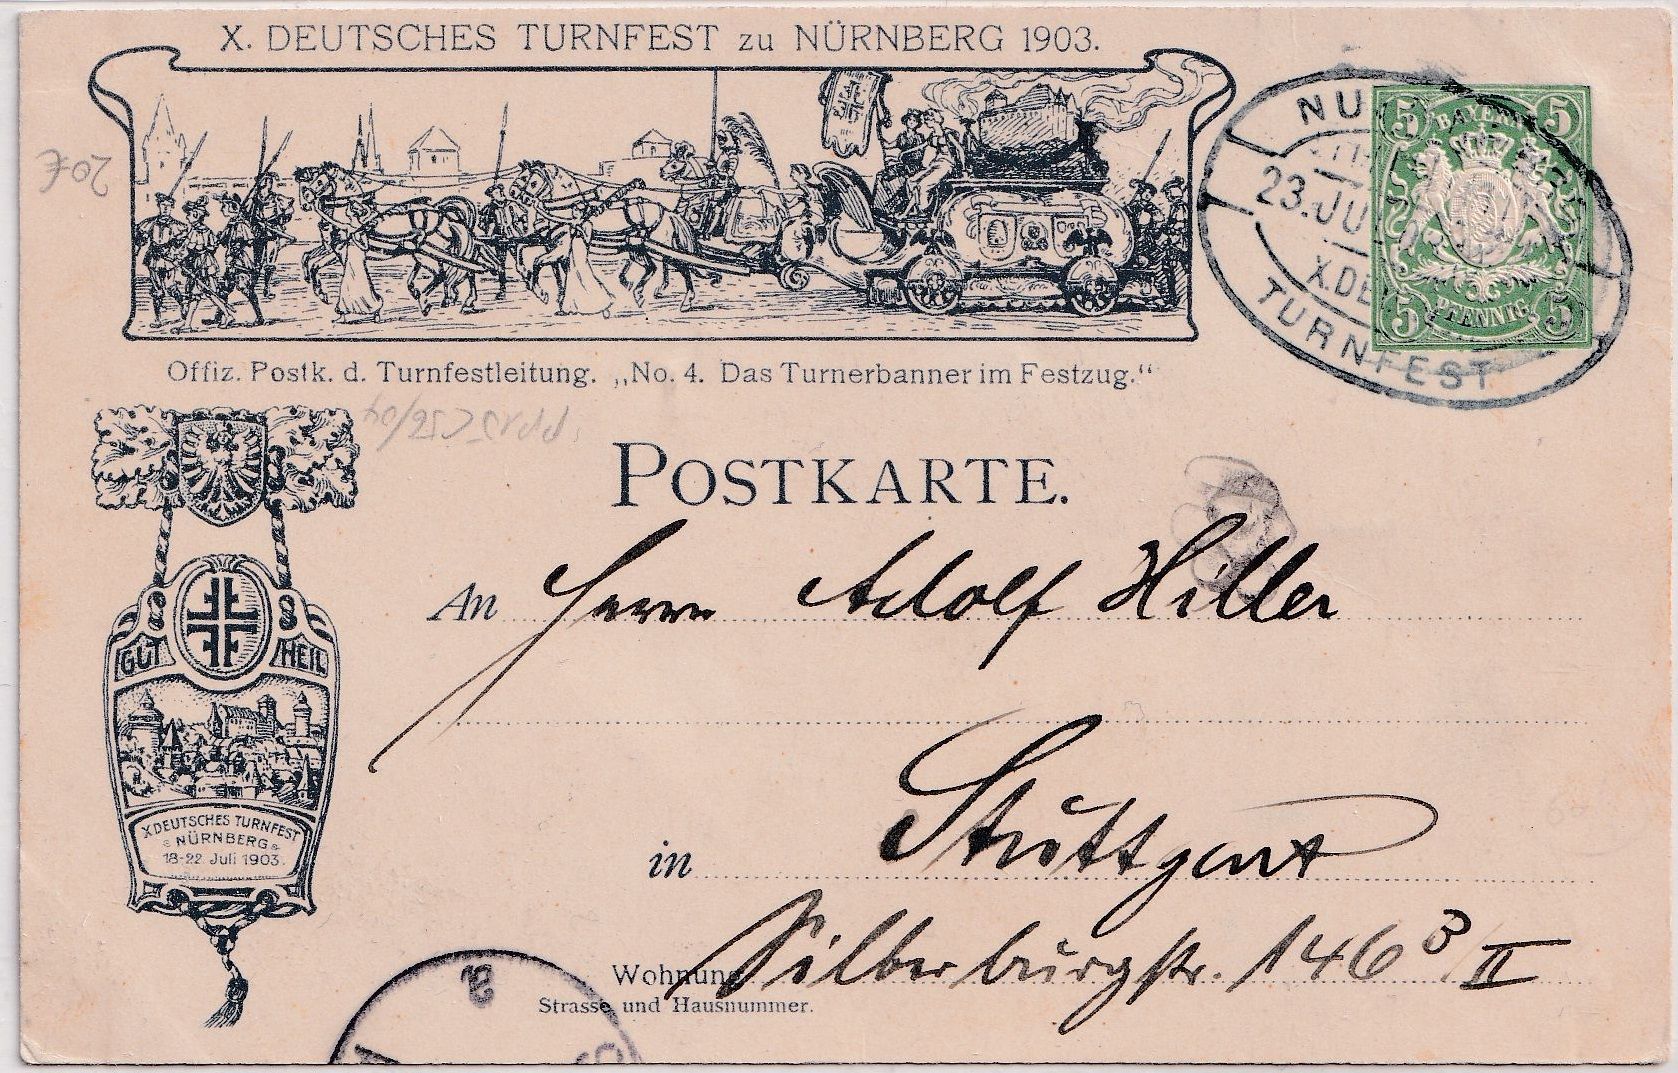 X. DEUTSCHES TURNFEST zu NÜRNBERG 1903.
5 BAYERN 5
5 PFENNIG 5
23. JU
X.DE
TURNFEST
Offiz. Postk. d. Turnfestleitung. „No. 4. Das Turnerbanner im Festzug."
POSTKARTE.
An Herrn Adolf Hiller
GUT HEIL
X DEUTSCHES TURNFEST
NÜRNBERG
18-22. Juli 1903.
in Stuttgart
Wohnung Silberburgstr. 146 B/II
Strasse und Hausnummer.